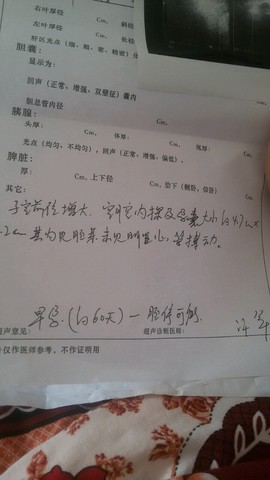 右叶厚径 Cm, 斜径
左叶厚径 Cm, 长径
肝区光点（细、粗、密、稀密）分
胆囊：
显示为：
回声（正常、增强、双壁征）囊内
胆总管内径 Cm,
胰腺：
头厚： Cm, 体厚： Cm, 尾厚： Cm,
光点（均匀、不均匀），回声（正常、增强、偏低），
脾脏：
厚： Cm, 上下径 Cm, 肋下（侧卧、仰卧） Cm,
其它：
子宫前位增大，宫内探及孕囊大小约4.7cm×
2cm 其内见胚芽未见明显心管搏动。
早孕（约60天）— 胚停可能
超声意见： 超声诊断医师：
仅作医师参考，不作证明用